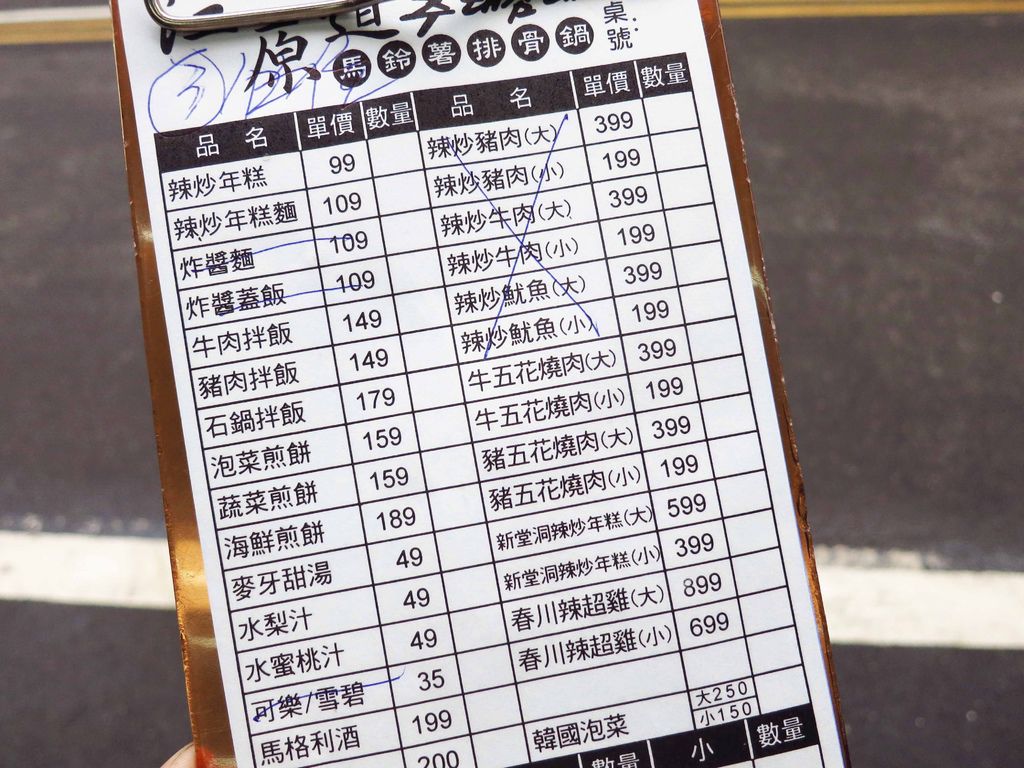 原
馬鈴薯排骨鍋
桌號:
品名 單價 數量 品名 單價 數量
辣炒年糕 99 辣炒豬肉(大) 399
辣炒年糕麵 109 辣炒豬肉(小) 199
炸醬麵 109 辣炒牛肉(大) 399
炸醬蓋飯 109 辣炒牛肉(小) 199
牛肉拌飯 149 辣炒魷魚(大) 399
豬肉拌飯 149 辣炒魷魚(小) 199
石鍋拌飯 179 牛五花燒肉(大) 399
泡菜煎餅 159 牛五花燒肉(小) 199
蔬菜煎餅 159 豬五花燒肉(大) 399
海鮮煎餅 189 豬五花燒肉(小) 199
麥牙甜湯 49 新堂洞辣炒年糕(大) 599
水梨汁 49 新堂洞辣炒年糕(小) 399
水蜜桃汁 49 春川辣超雞(大) 899
可樂/雪碧 35 春川辣超雞(小) 699
馬格利酒 199
200 韓國泡菜 大250 小150
數量 小 數量